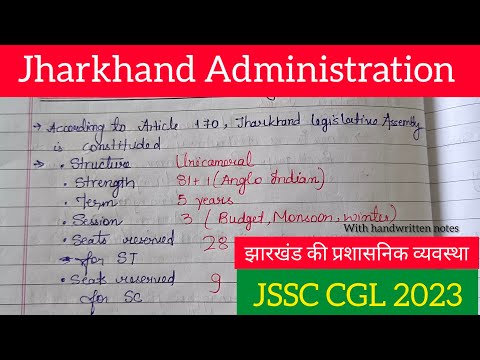 Jharkhand Administration
→ According to Article 170, Jharkhand legislative Assembly
is constituted
→ • Structure Unicameral
• Strength 81+1 (Anglo Indian)
• Term 5 years
• Session 3 (Budget, Monsoon, winter)
With handwritten notes
• Seats reserved 28
for ST
झारखंड की प्रशासनिक व्यवस्था
• Seats reserved 9
for SC
JSSC CGL 2023